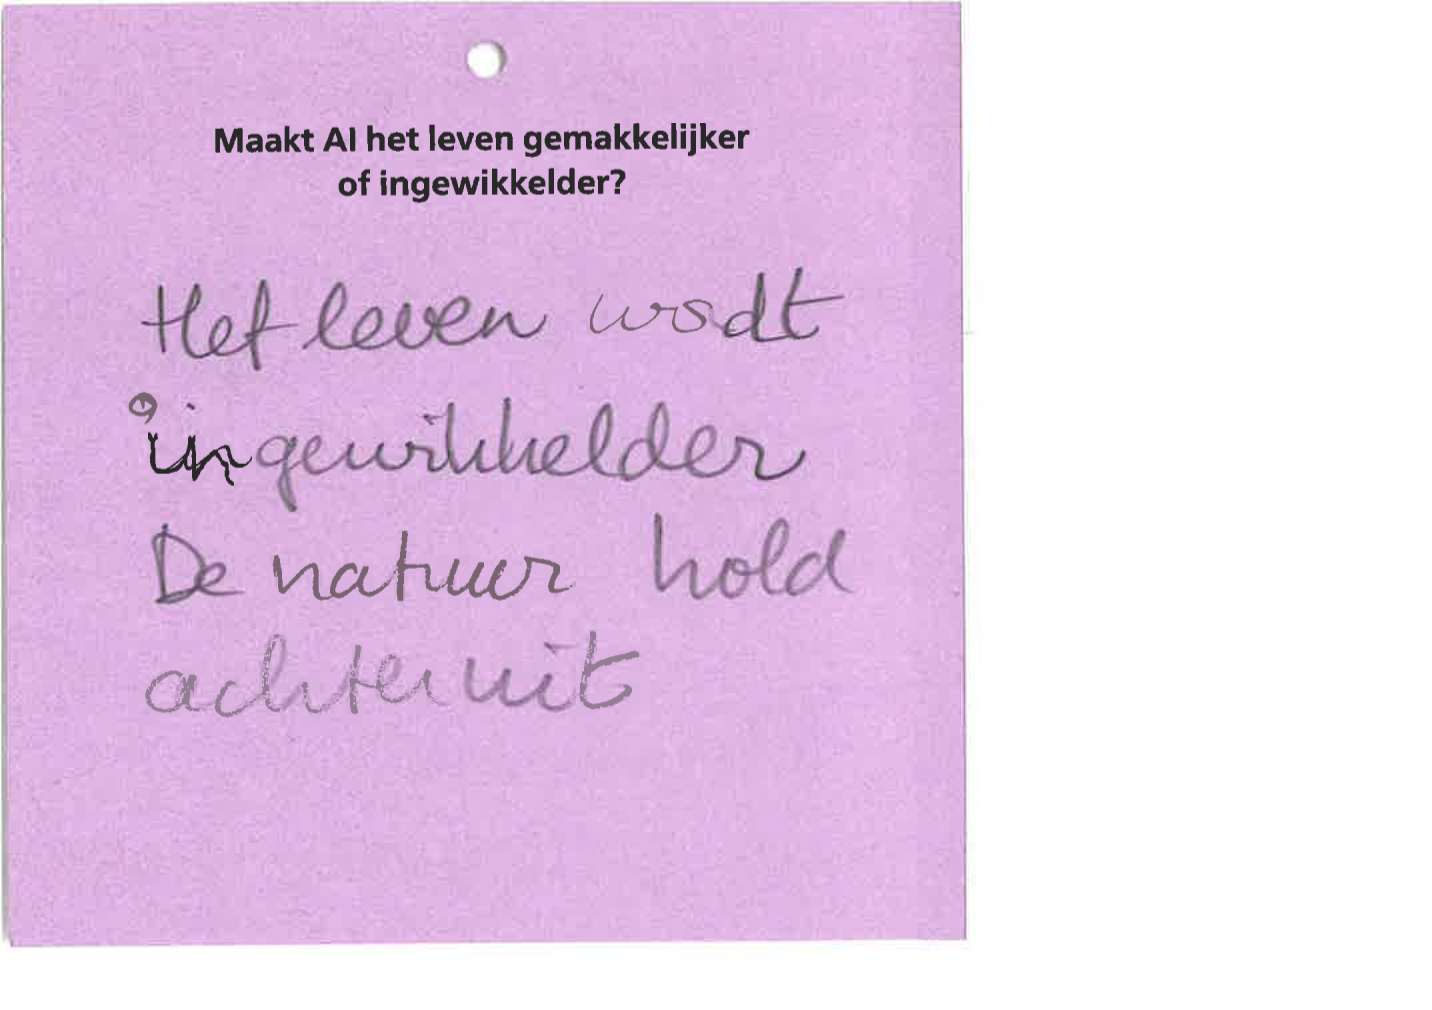 Maakt AI het leven gemakkelijker
of ingewikkelder?
Het leven wodt
ingewikkelder
De natuur hold
achteruit